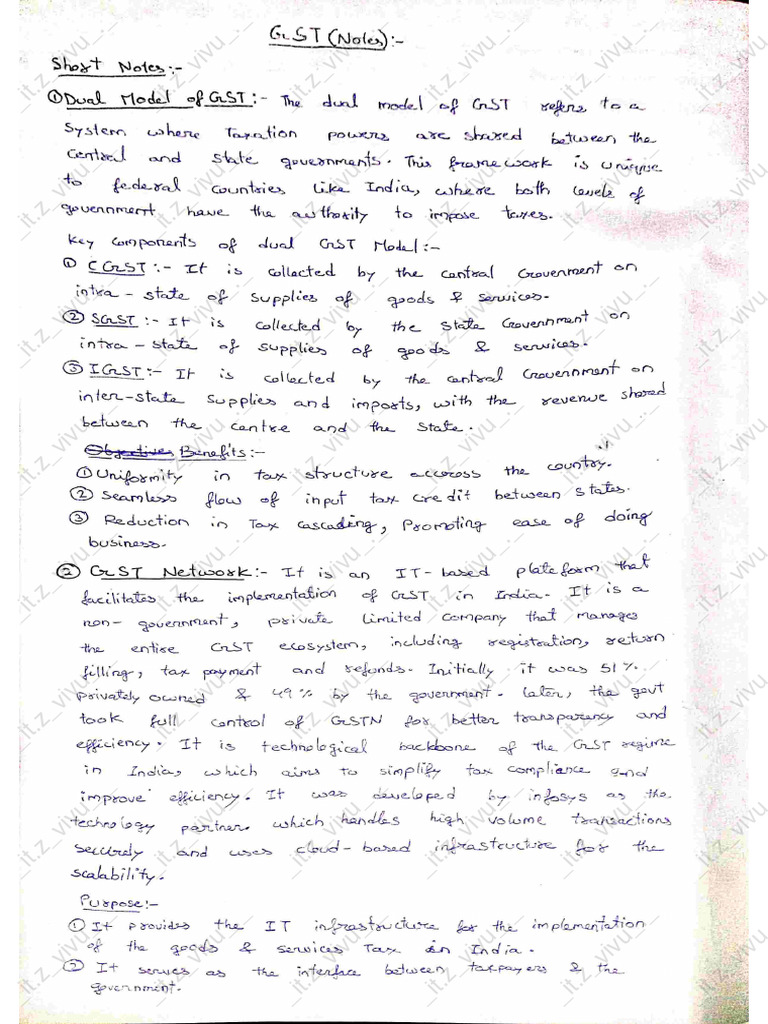 GST (Notes):-
Short Notes:-
① Dual Model of GST:- The dual model of GST refers to a
System where Taxation powers are shared between the
Central and State governments. This framework is unique
to federal countries like India, where both levels of
government have the authority to impose taxes.
Key components of dual GST Model:-
① CGST:- It is collected by the central Government on
intra-state of supplies of goods & services.
② SGST:- It is collected by the State Government on
intra-state of supplies of goods & services.
③ IGST:- It is collected by the central Government on
inter-state supplies and imports, with the revenue shared
between the centre and the State.
Objectives Benefits:-
① Uniformity in tax structure accross the country.
② Seamless flow of input tax credit between states.
③ Reduction in Tax cascading, Promoting ease of doing
business.
② GST Network:- It is an IT-based plateform that
facilitates the implementation of GST in India. It is a
non-government, private limited company that manages
the entire GST ecosystem, including registration, return
filling, tax payment and refunds. Initially it was 51%
privately owned & 49% by the government. Later, the govt
took full control of GSTN for better transparency and
efficiency. It is technological backbone of the GST regime
in India, which aims to simplify tax compliance and
improve efficiency. It was developed by infosys as the
technology partner. which handles high volume transactions
securely and uses cloud-based infrastructure for the
scalability.
Purpose:-
① It provides the IT infrastructure for the implementation
of the goods & services Tax in India.
② It serves as the interface between taxpayers & the
government.
_it.z_vivu_.